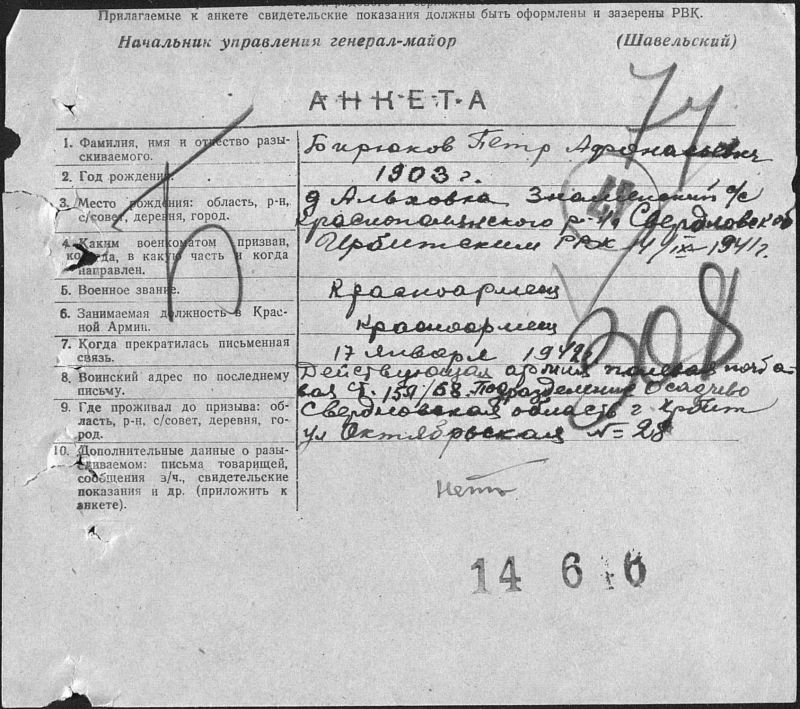 Прилагаемые к анкете свидетельские показания должны быть оформлены и заверены РВК.
Начальник управления генерал-майор (Шавельский)
АНКЕТА
1. Фамилия, имя и отчество разыскиваемого. Бирюков Петр Афонасьевич
2. Год рождения. 1903 г.
3. Место рождения: область, р-н, д Альховка Знаменский с/с
с/совет, деревня, город. Краснополянского р-на Свердловской
4. Каким военкоматом призван, Ирбитским РВК 4/IX-1941г.
когда, в какую часть и когда
направлен.
5. Военное звание. Красноармеец
6. Занимаемая должность в Крас-
ной Армии. Красноармеец
7. Когда прекратилась письменная 17 января 1942г
связь.
8. Воинский адрес по последнему Действующая армия полевая почто-
письму. вая ст. 1591/68 подразделение
9. Где проживал до призыва: об- Свердловская область г. Ирбит
ласть, р-н, с/совет, деревня, го- ул Октябрьская № 28
род.
10. Дополнительные данные о разы-
скиваемом: письма товарищей,
сообщения з/ч., свидетельские
показания и др. (приложить к Нет
анкете).
77
Б
308
14 6 6